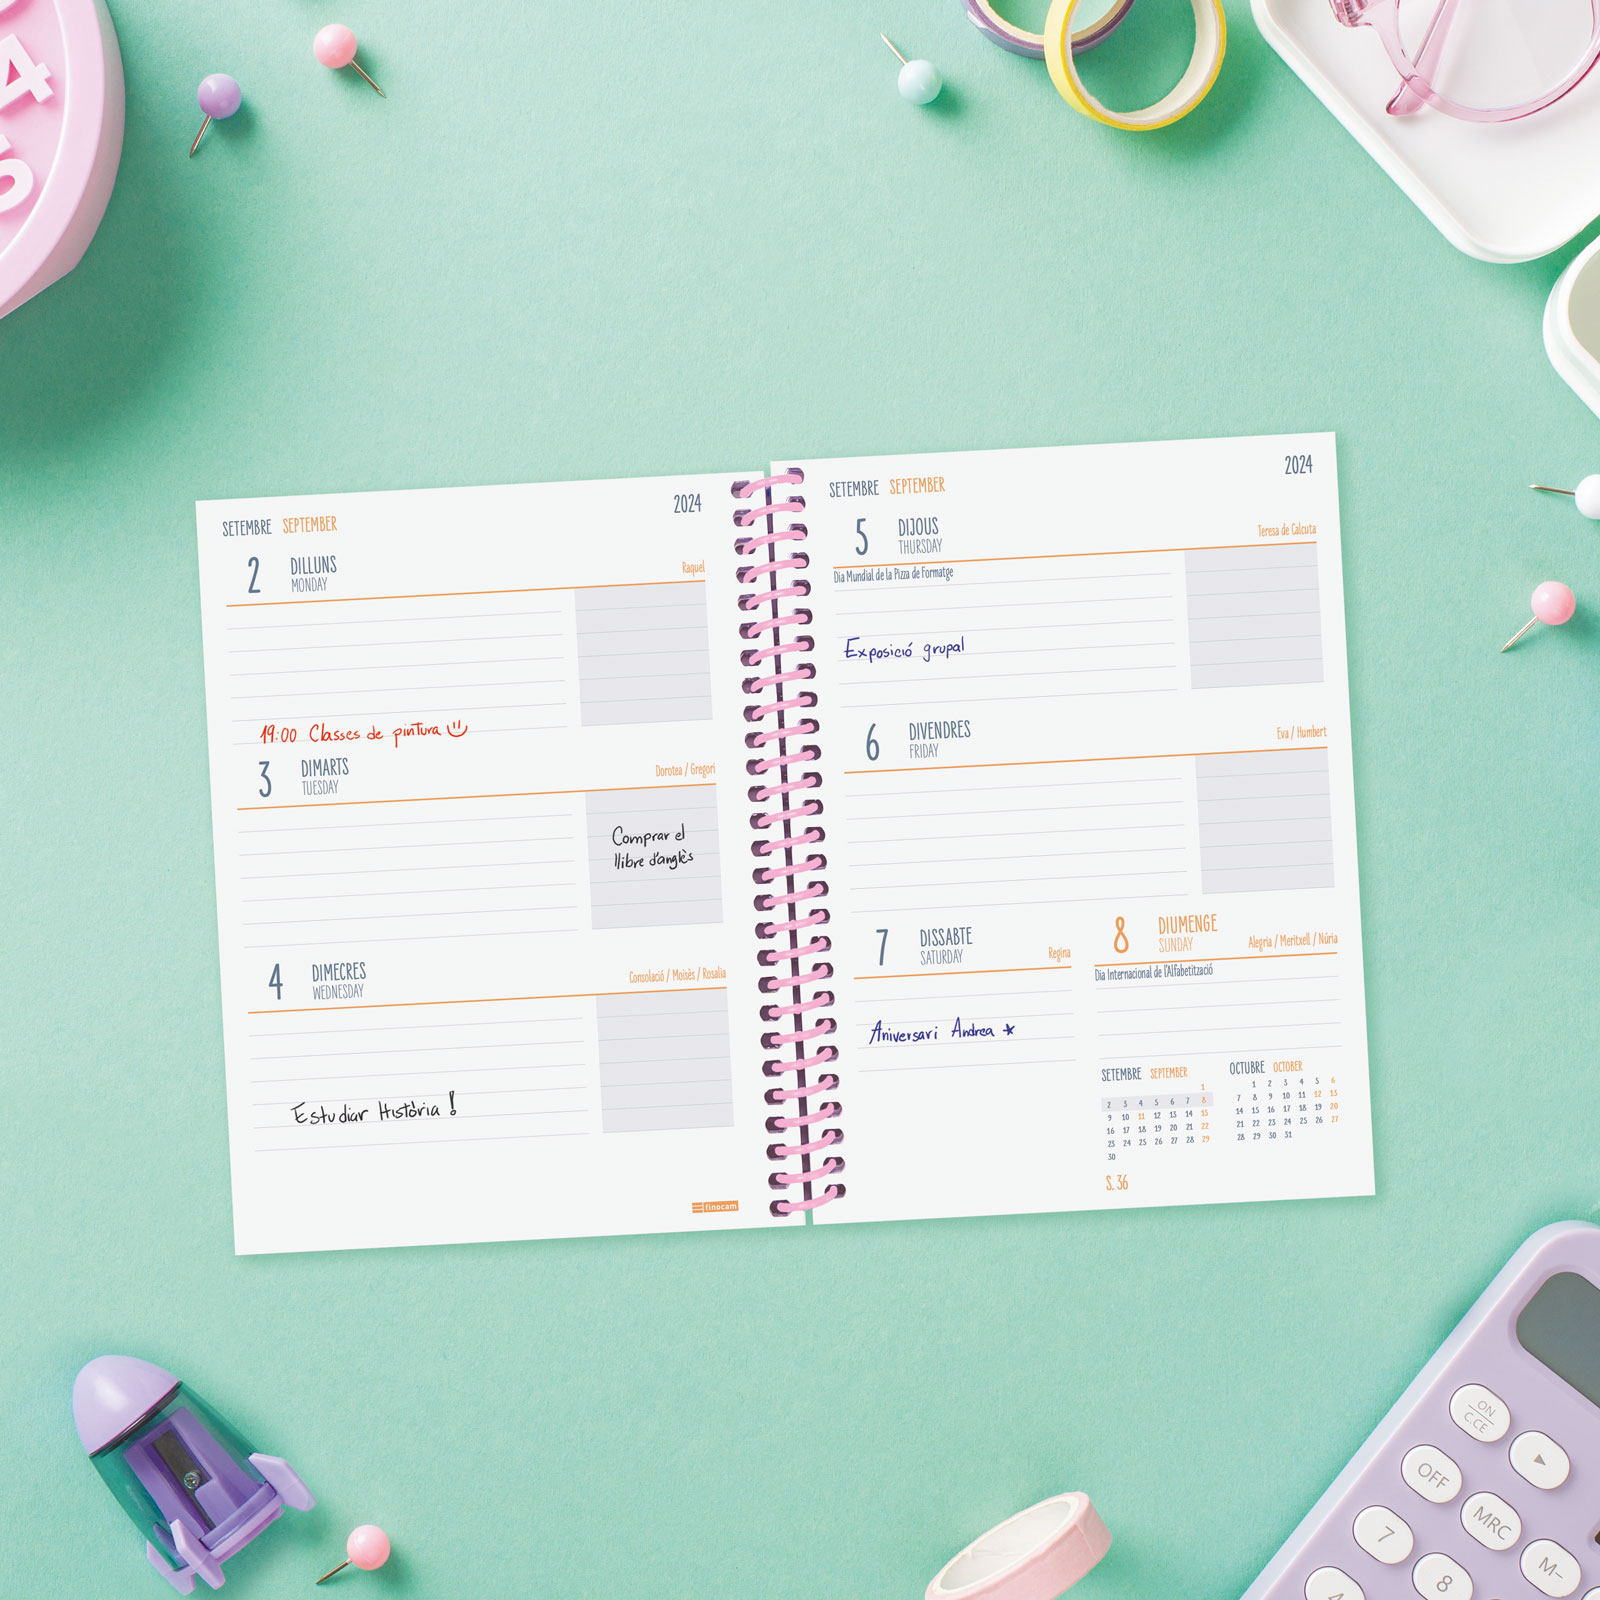 4
5
SETEMBRE SEPTEMBER 2024
2 DILLUNS
MONDAY
Raquel
19:00 Classes de pintura
3 DIMARTS
TUESDAY
Dorotea / Gregori
Comprar el
llibre d'anglès
4 DIMECRES
WEDNESDAY
Consolació / Moisès / Rosalia
Estudiar Història !
finocam
SETEMBRE SEPTEMBER 2024
5 DIJOUS
THURSDAY
Teresa de Calcuta
Dia Mundial de la Pizza de Formatge
Exposició grupal
6 DIVENDRES
FRIDAY
Eva / Humbert
7 DISSABTE
SATURDAY
Regina
Aniversari Andrea
8 DIUMENGE
SUNDAY
Alegria / Meritxell / Núria
Dia Internacional de l'Alfabetització
SETEMBRE SEPTEMBER
1
2 3 4 5 6 7 8
9 10 11 12 13 14 15
16 17 18 19 20 21 22
23 24 25 26 27 28 29
30
S. 36
OCTUBRE OCTOBER
1 2 3 4 5 6
7 8 9 10 11 12 13
14 15 16 17 18 19 20
21 22 23 24 25 26 27
28 29 30 31
ON
C.CE
OFF
MRC
7
M-
8
4